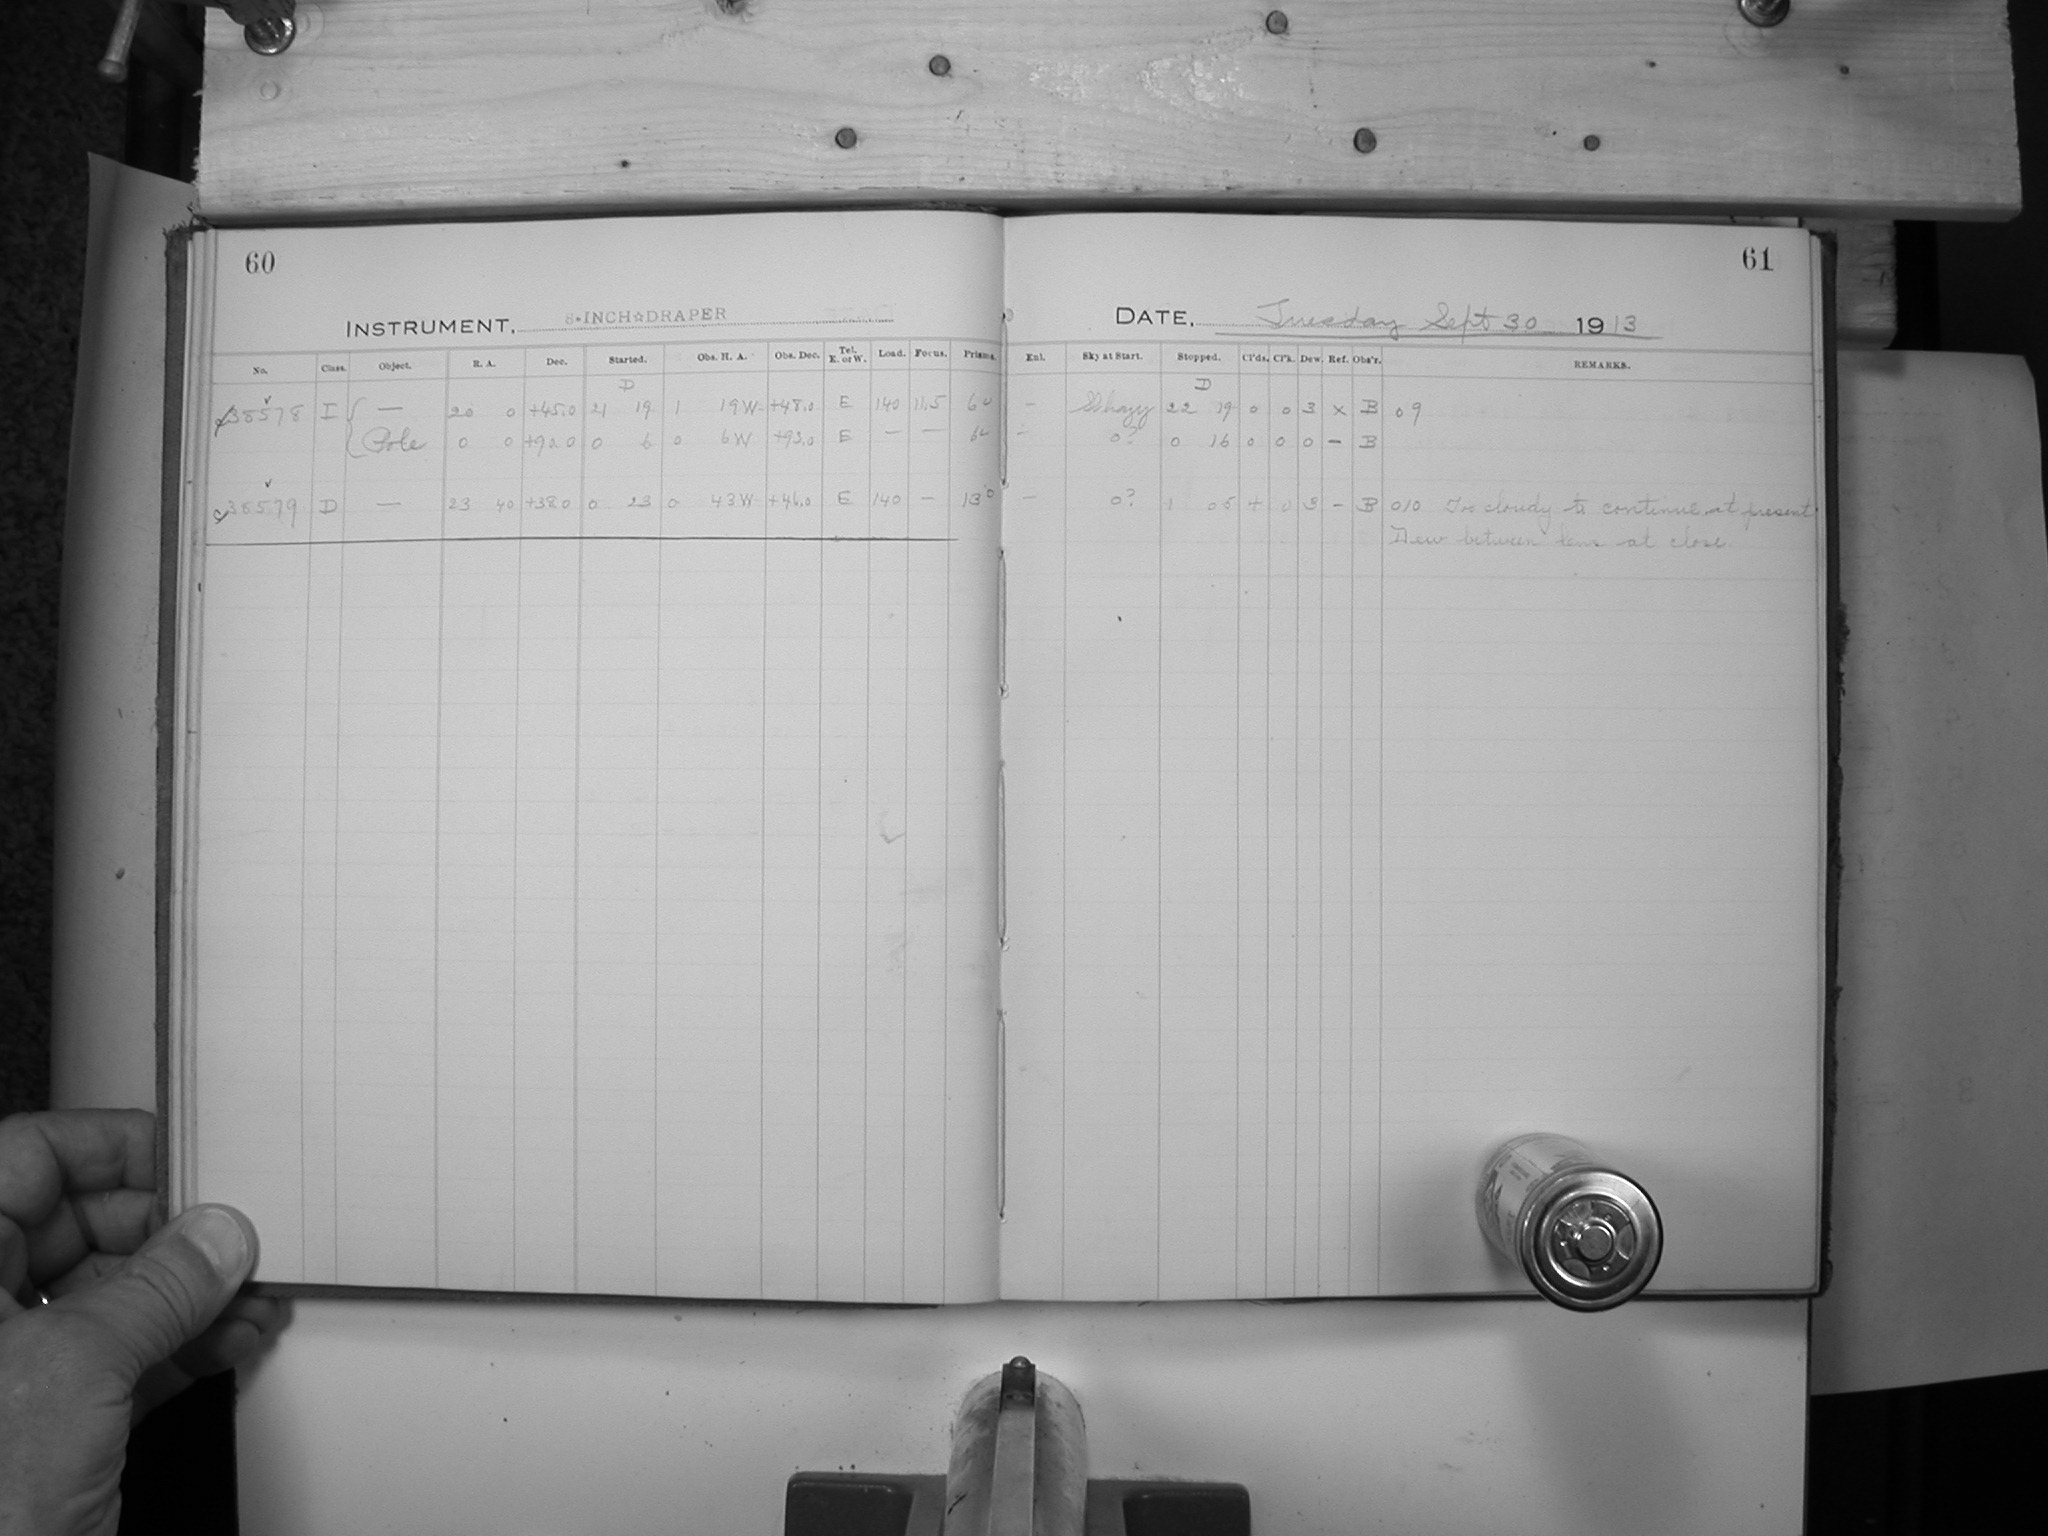 60
61
INSTRUMENT, 8-INCH☆DRAPER
DATE, Tuesday Sept 30 1913
No. Class. Object. R. A. Dec. Started. Obs. H. A. Obs. Dec. Tel. E. or W. Load. Focus. Prisms. Enl. Sky at Start. Stopped. Cl'ds. Cl'k. Dew. Ref. Obs'r. REMARKS.
D D
38578 I — 20 0 +45.0 21 19 1 19W +48.0 E 140 11.5 — 22 19 0 0 3 x B 09
Pole 0 0 +90.0 0 6 0 6W +93.0 E — — — 0? 0 16 0 0 0 — B
38579 D — 23 40 +38.0 0 23 0 43W +46.0 E 140 — 13° — 0? 1 05 + 0 3 — B 010 Too cloudy to continue at present
Dew between lens at close.